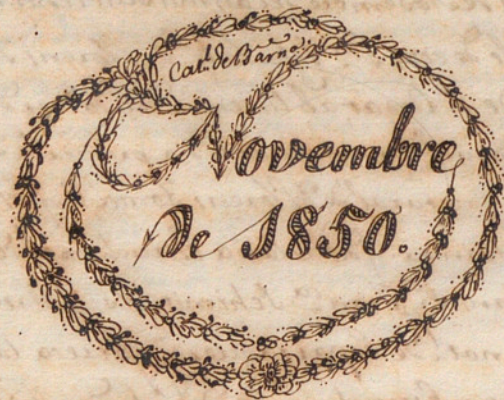 Cat.l de Barna
Novembre
de 1850.